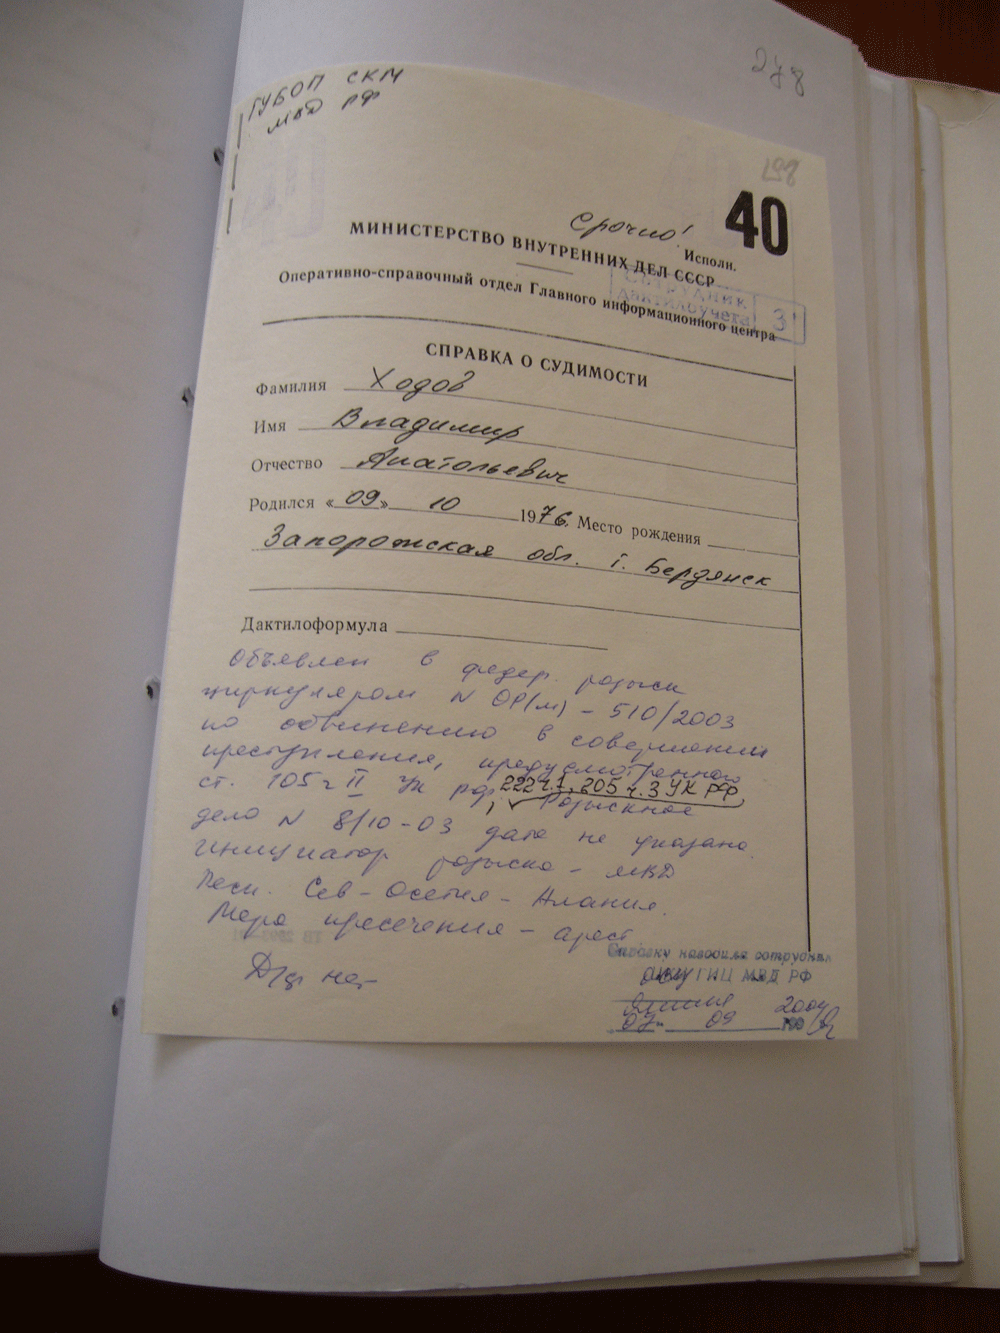 278
ГУБОП СКМ
МВД РФ
198
40
Срочно!
Исполн.
МИНИСТЕРСТВО ВНУТРЕННИХ ДЕЛ СССР
Оперативно-справочный отдел Главного информационного центра
СОТРУДНИК
Дактилоучета
3
СПРАВКА О СУДИМОСТИ
Фамилия Ходов
Имя Владимир
Отчество Анатольевич
Родился «09» 10 1976. Место рождения
Запорожская обл. г. Бердянск
Дактилоформула
Объявлен в федер. розыск
циркуляром N ОР(м) – 510/2003
по обвинению в совершении
преступления, предусмотренного
ст. 105 ч II УК РФ, 222 ч.1, 205 ч.3 УК РФ
Розыскное
дело N 8/10-03 дата не указана.
инициатор розыска – МВД
Респ. Сев-Осетия – Алания.
Мера пресечения – арест
Справку наводила сотрудник
ГИЦ МВД РФ
2004
07 09 199